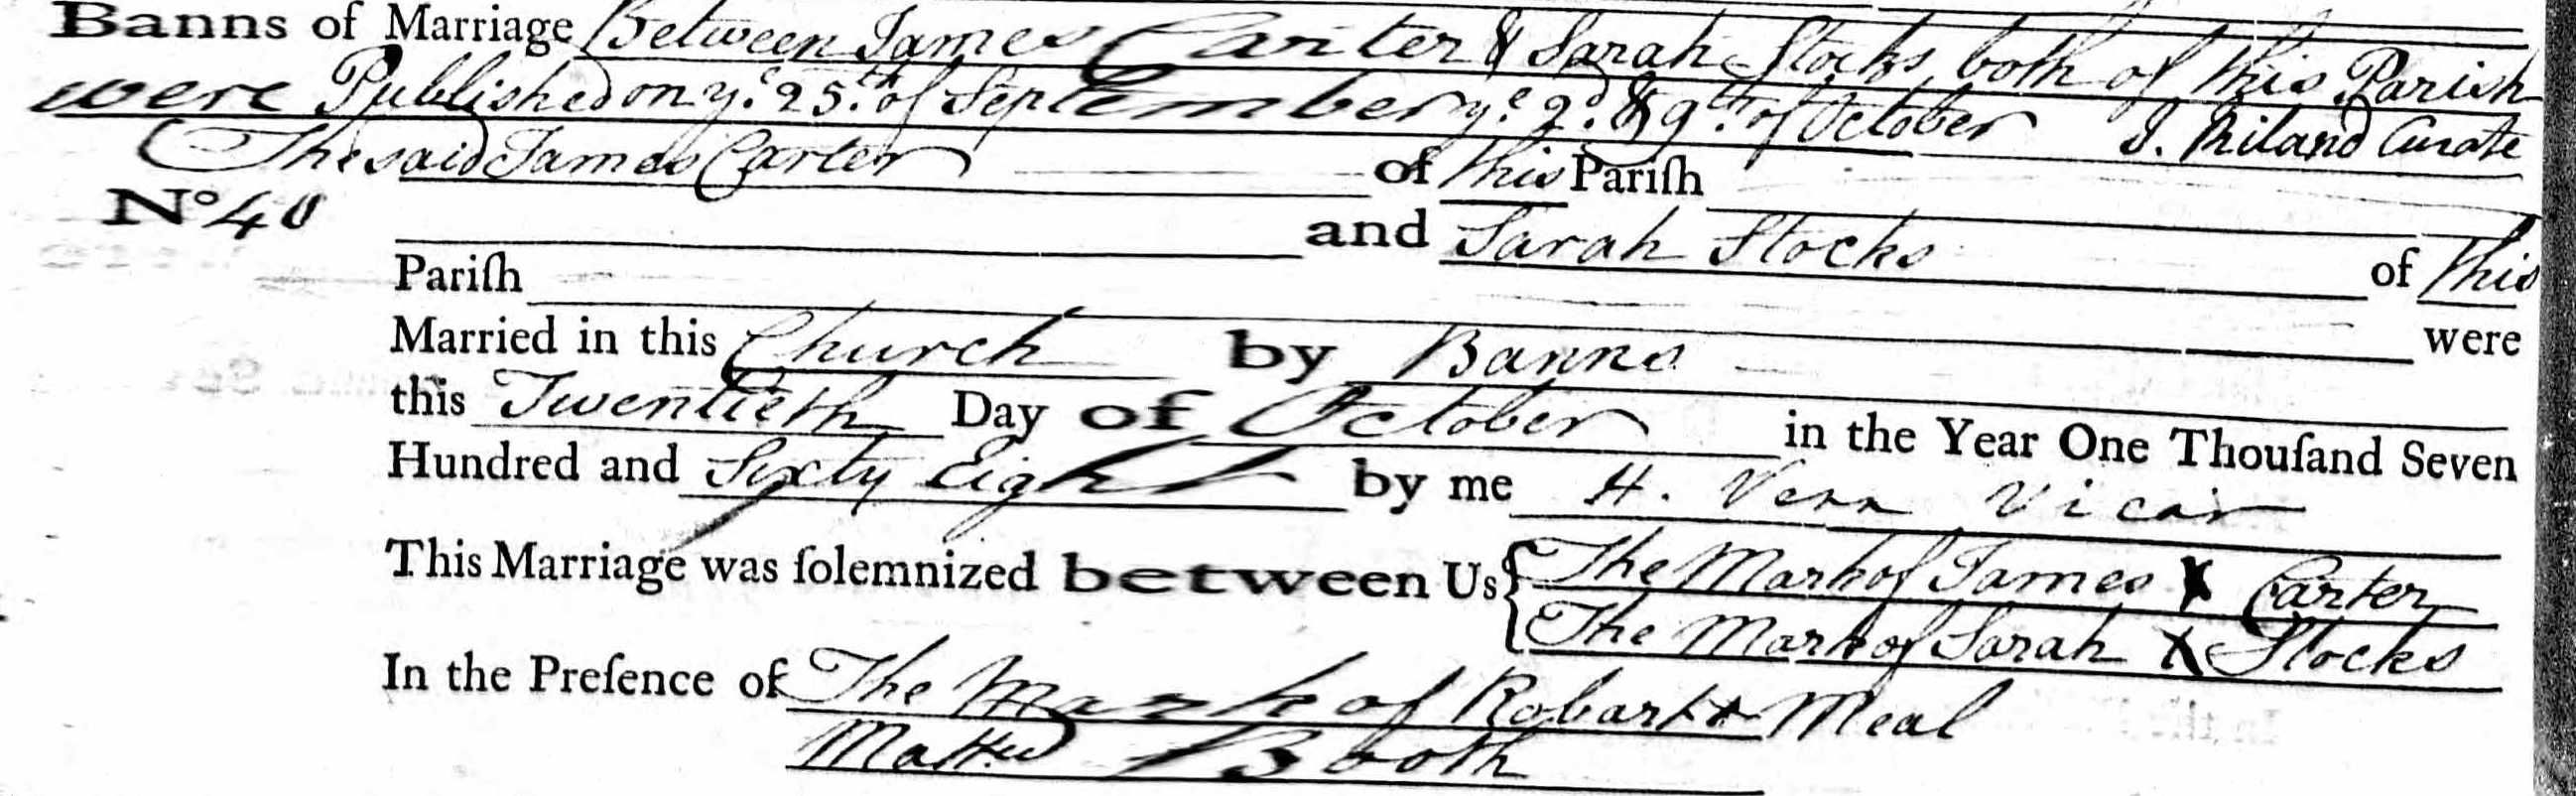 Banns of Marriage Between James Carter & Sarah Stocks both of this Parish
were Published on ye. 25th. of September ye. 2d. & 9th. of October J. Riland Curate
The said James Carter of this Pariſh
No 40 and Sarah Stocks of this
Pariſh were
Married in this Church by Banns
this Twentieth Day of October in the Year One Thouſand Seven
Hundred and Sixty Eight by me H. Venn Vicar
This Marriage was ſolemnized between Us { The Mark of James X Carter
The Mark of Sarah X Stocks
In the Preſence of The Mark of Robart + Meal
Mattw Booth